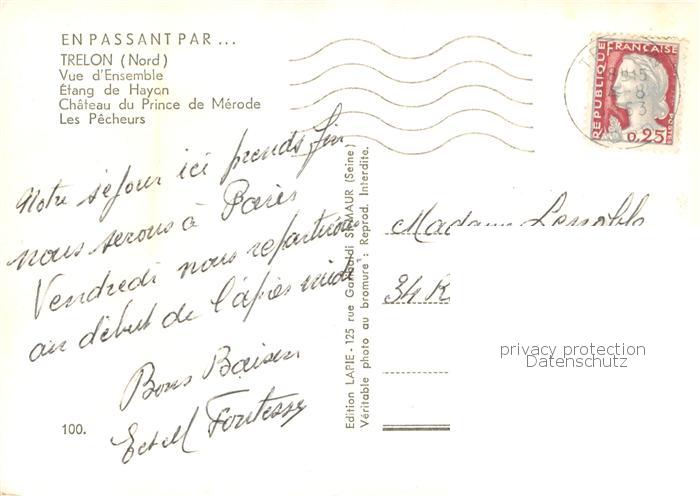 EN PASSANT PAR ...
TRELON (Nord)
Vue d'Ensemble
Étang de Hayon
Château du Prince de Mérode
Les Pêcheurs
RÉPUBLIQUE FRANÇAISE
0,25
Notre séjour ici prends fin
nous serons à Paris
Vendredi nous repartirons
au début de l'après midi
Bons Baisers
100.
Edition LAPIE - 125 rue Garibaldi ST-MAUR (Seine)
Véritable photo au bromure : Reprod. Interdite.
Madame
34 R
privacy protection
Datenschutz